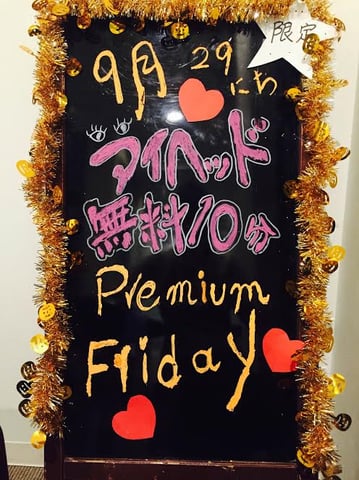 限定
9月29にち
アイヘッド
無料10分
Premium
Friday